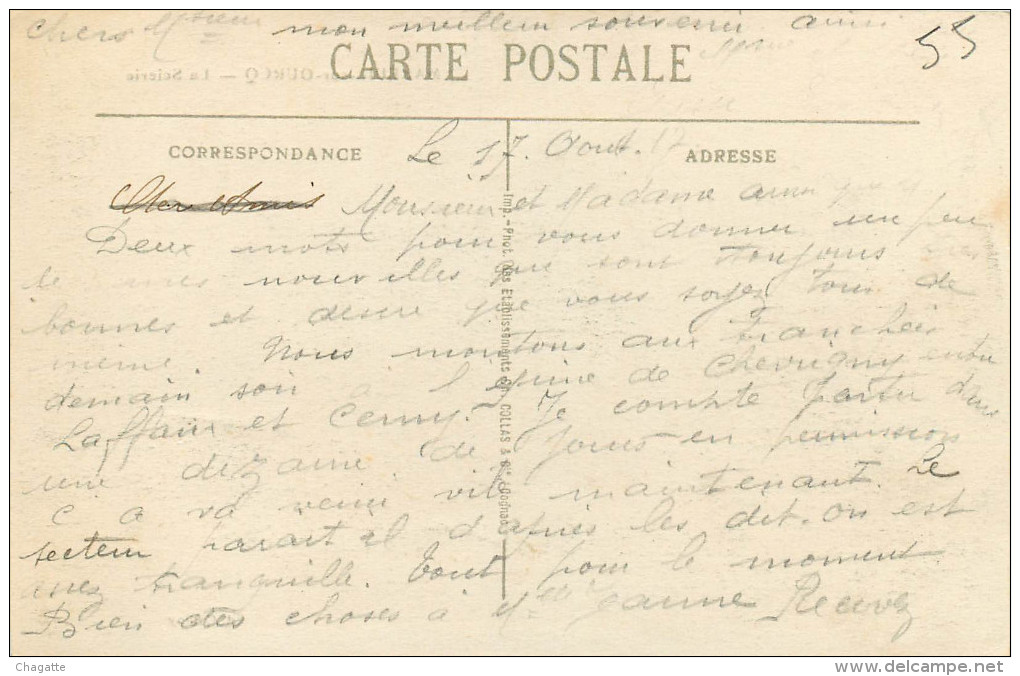 chers Msieur mon meilleur souvenir ainsi
55
CARTE POSTALE
OURCQ — La Scierie
CORRESPONDANCE
Le 17. Aout. 17
ADRESSE
Cher Amis Monsieur et Madame
Deux mots pour vous donner un peu
de mes nouvelles qui sont toujours
bonnes et desire que vous soyez tous de
meme. Nous montons aux tranchées
demain soir a l epine de Chevrigny entre
Laffaux et Cerny. Je compte partir dans
une dizaine de jours en permission
c a va venir vite maintenant. Le
secteur parait il d'apres les dit. on est
assez tranquille. Tout pour le moment
Bien des choses à Melle Jeanne Recevez
Imp.-Phot. des Etablissements COLLAS & Cie, Cognac
Chagatte
www.delcampe.net